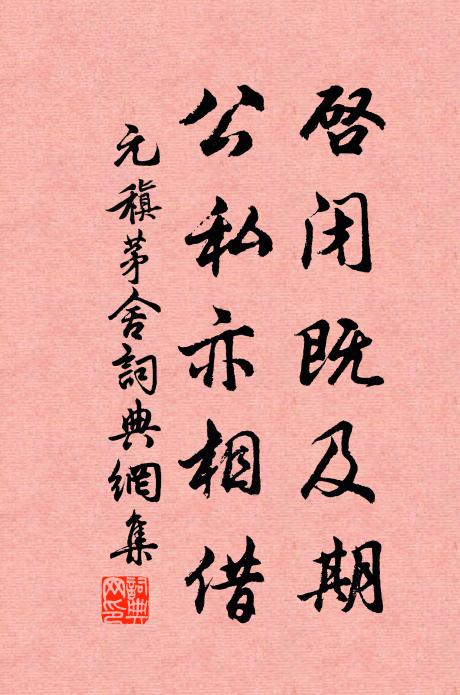 啓闭既及期
公私亦相借
元稹茅舍詞典網集
詞典
网印